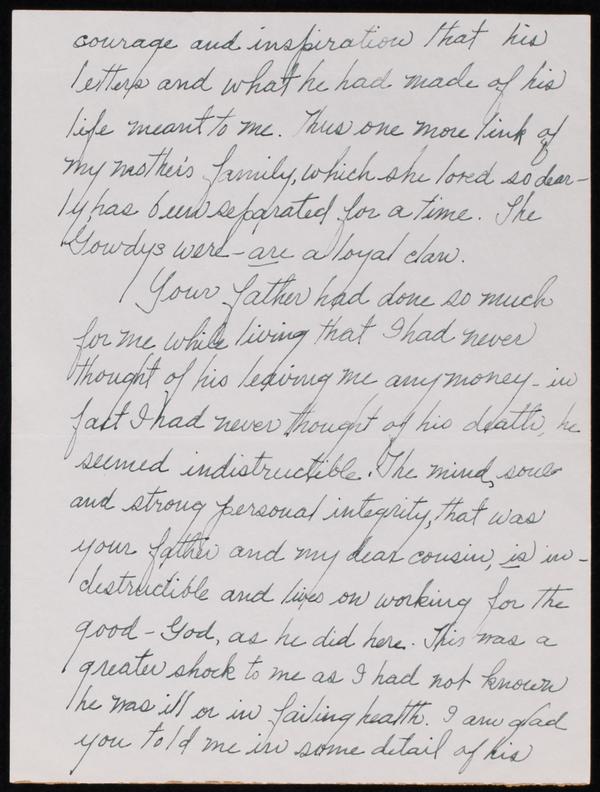 courage and inspiration that his
letters and what he had made of his
life meant to me. Thus one more link of
my mother's family, which she loved so dear-
ly, has been separated for a time. The
Gowdys were - are a loyal clan.
Your father had done so much
for me while living that I had never
thought of his leaving me any money - in
fact I had never thought of his death, he
seemed indistructible. The mind, soul
and strong personal integrity, that was
your father and my dear cousin, is in-
destructible and lives on working for the
good - God, as he did here. This was a
greater shock to me as I had not known
he was ill or in failing health. I am glad
you told me in some detail of his